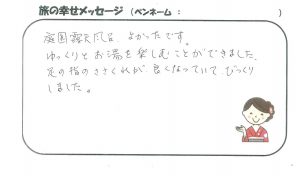 旅の幸せメッセージ（ペンネーム：　　　　）
庭園露天風呂 よかったです。
ゆっくりとお湯を楽しむことができました。
足の指のささくれが良くなっていて、びっくり
しました。